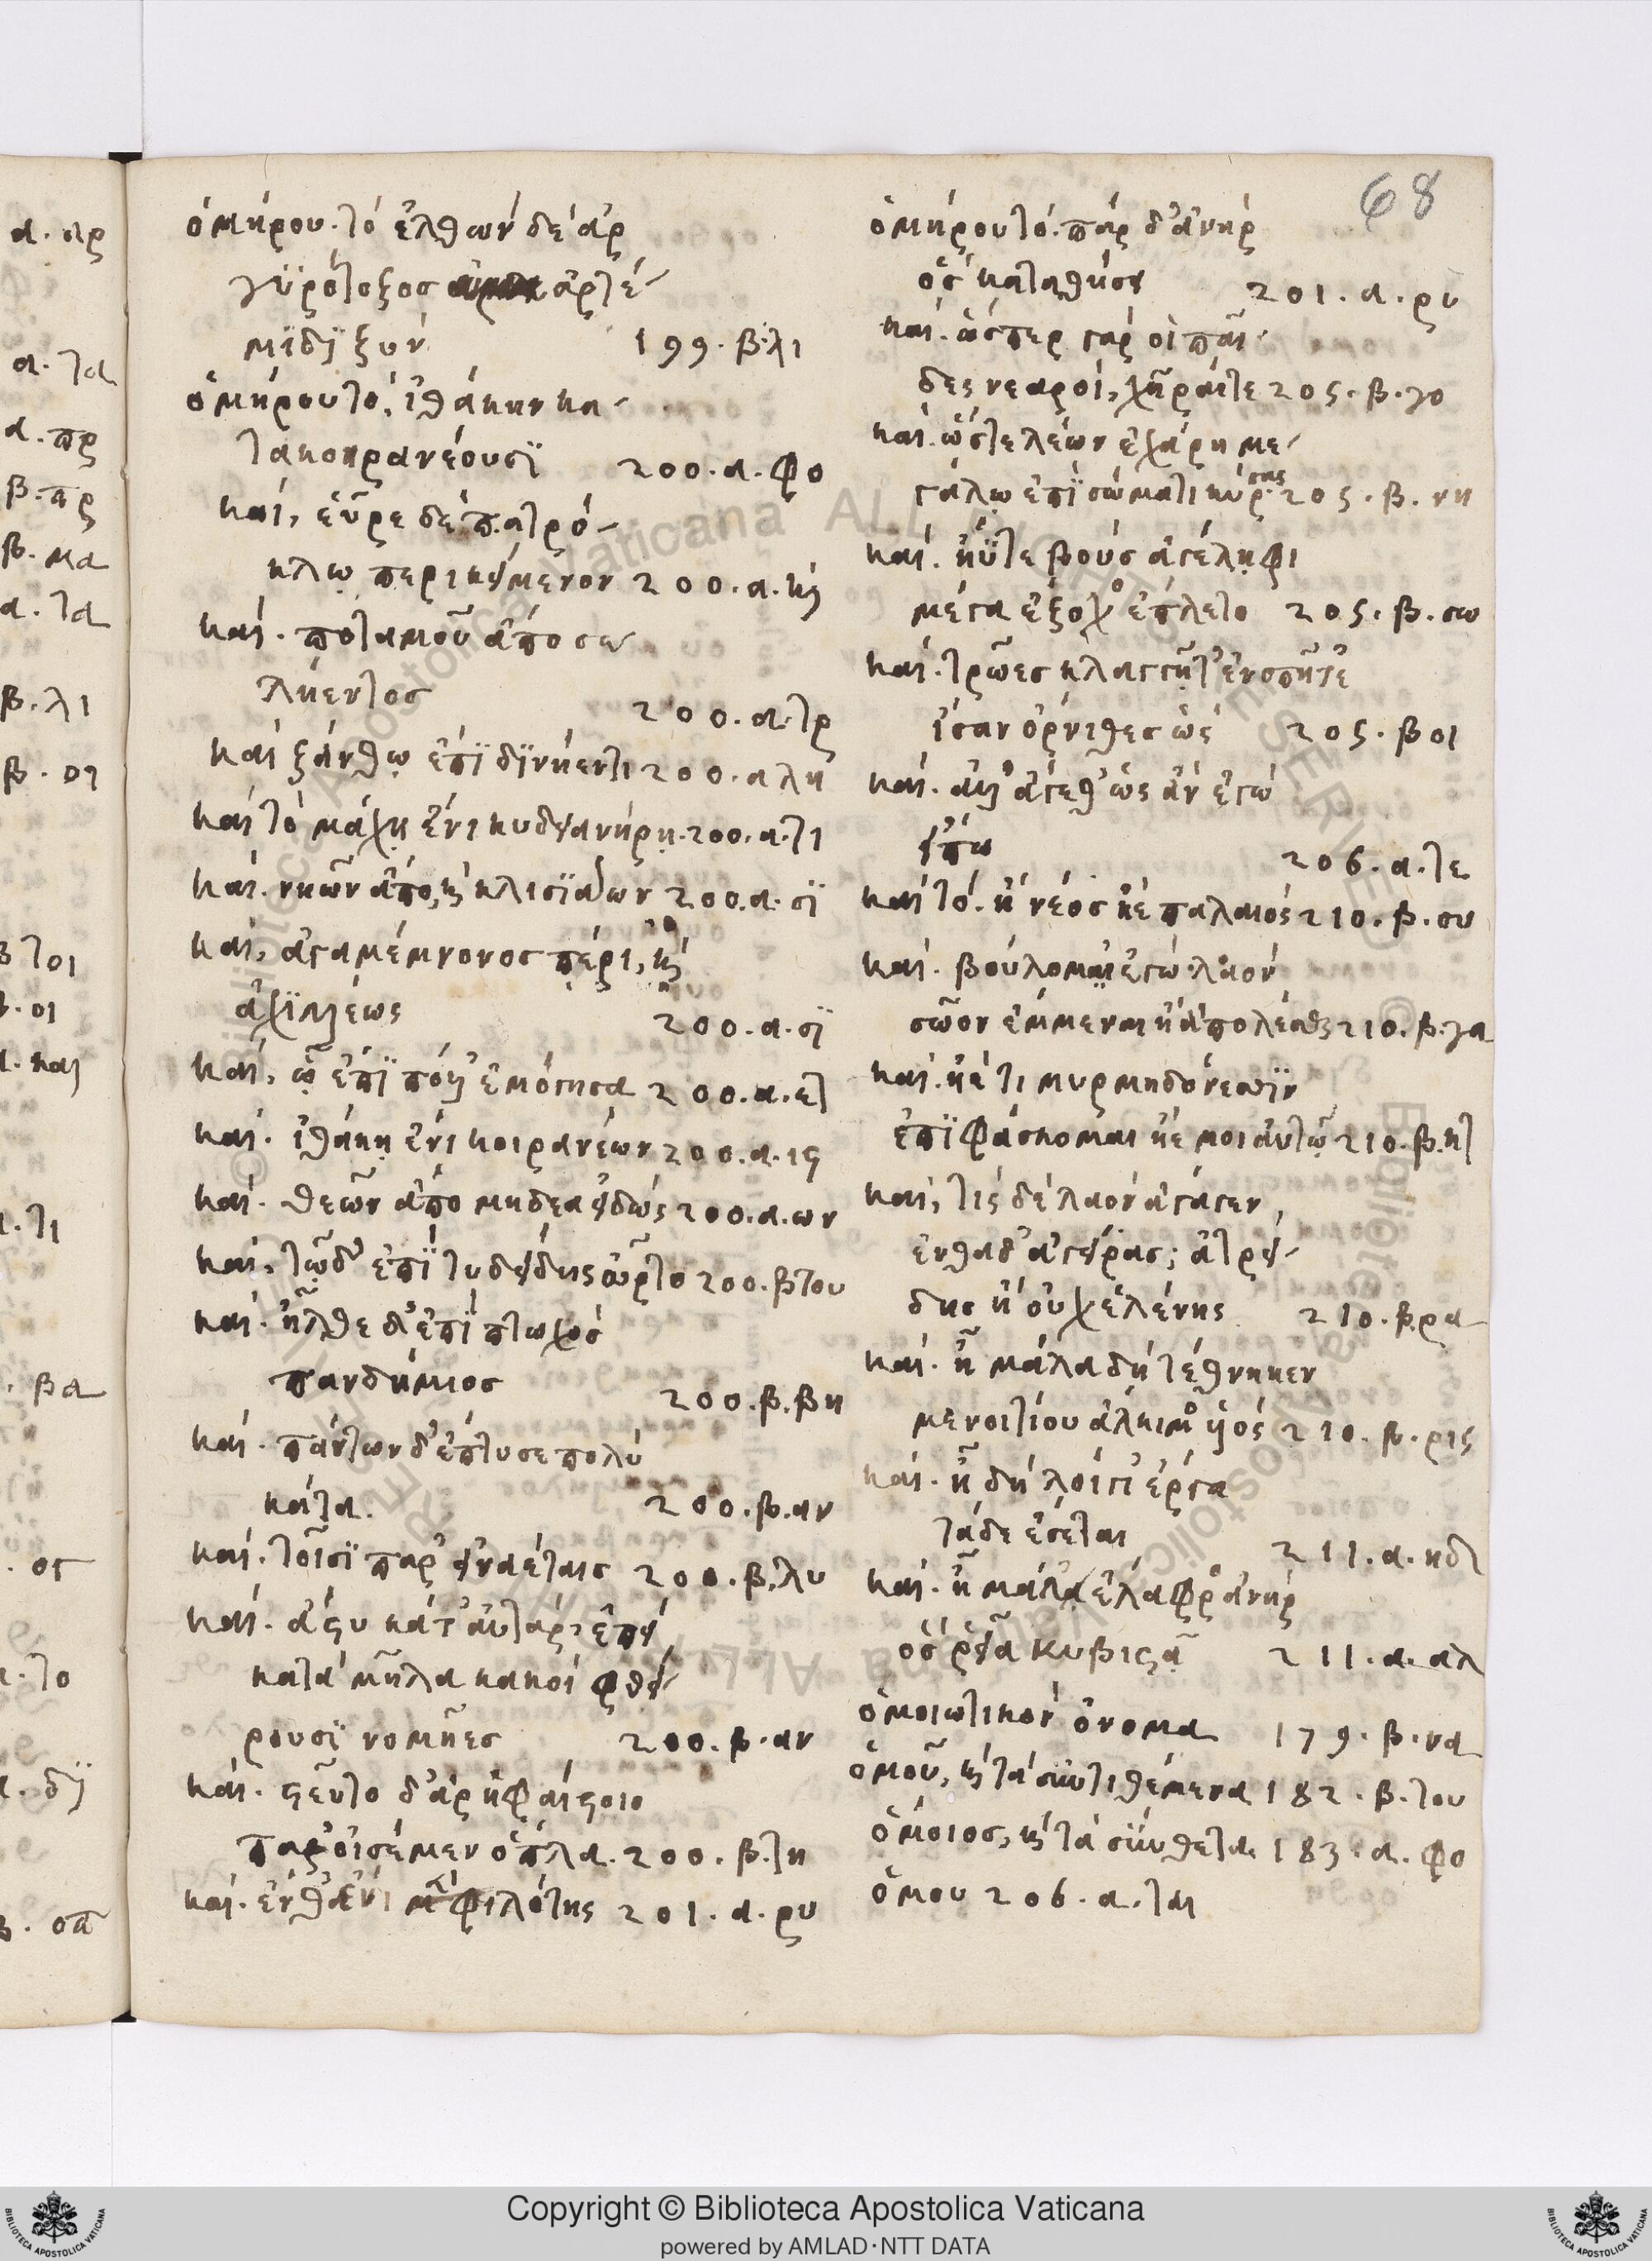 68
ὁμήρου· τό ἐλθών δέ ἀρ
γϋρότοξος ἀρτέ-
μϊδϊ ξύν 199·β·λι
ὁμήρου τό, ἰθάκην κα-
τακοιρανέουσϊ 200·α·φο
καί, εὗρε δέ πατρό-
κλῳ περικείμενον 200·α·κὶ
καί· ποταμοῦ ἄπο σελ
λήεντος 200·α·τρ
καί ξάνθῳ ἔπϊ δϊνήεντι 200·α λη
καί τό μάχῃ ἔνι κυδιανείρῃ· 200·α·τι
καί· νηῶν ἄπο, καί κλισϊάων 200·α·σϊ
καί, ἀγαμέμνονος πέρι, καί
ἀχϊλῆέως 200·α·σϊ
καί, ᾧ ἔπϊ πόλλ' ἐμόγησα 200·α·ετ
καί· ἰθάκῃ ἔνι κοιρανέων 200·α·ις
καί· θεῶν ἄπο μήδεα εἰδώς 200·α·ων
καί, τῷ δ' ἐπϊ τυδείδης ὦρτο 200·β του
καί· ἦλθε δ' ἐπϊ πτωχός
πανδήμιος 200·β·βη
καί· πάντων δ' ἔπτυσε πολύ
κάτα. 200·β·αν
καί· τοῖσϊ παρ' εἰνάετες 200·β·λυ
καί· ἄστυ κάτ' αὐτάρ, ἐπεί
κατά μῆλα κακοί φθεί-
ρουσϊ νομῆες 200·β·αν
καί· στεῦτο δ' ἄρ ἡφαίστοιο
παρ' οἰσέμεν ὅπλα· 200·β·τη
καί· ἔνθ' ἔνι μέν φιλότης 201·α·ρυ
ὁμήρου τό· πάρ δ' ἀνήρ
ὅς καταθήσει 201·α·ρυ
καί· ὥσπερ γάρ οἱ παῖ-
δες νεαροί, χῆραί τε 205·β·γο
καί· ὥστε λέων ἐχάρη με-
γάλῳ ἐπϊ σώματι κύρσας 205·β·νη
καί· ἠΰτε βούς ἀγέληφι
μέγα ἔξοχος ἔπλετο 205·β·σω
καί· τρῶες κλαγγῇ τ' ἐνοπῇ τε
ἴσαν ὄρνιθες ὥς 205·β οι
καί· ἀλλ' ἄγεθ' ὡς ἄν ἐγώ
εἴπω 206·α·τε
καί τό· ἤ νέος ἠέ παλαιός 210·β·συ
καί· βούλομαι ἐγώ λαόν
σῶον ἔμμεναι ἤ ἀπολέσθαι 210·β·γα
καί· ἠέ τι μυρμηδόνεσσϊν
ἐπϊφάσκομαι ἠέ μοι αὐτῷ 210·β·κτ
καί, τίς δέ λαόν ἀγάγεν,
ἐνθάδ' ἀγείρας; ἀτρεί-
δης ἤ οὐχ ἑλένης 210·β·ρα
καί· ἦ μάλα δή τέθνηκεν
μενοιτίου ἄλκιμος υἱός 210·β·ρις
καί· ἦ δή λοίγι' ἔργα
τάδε ἔσεται 211·α·κδ
καί· ἦ μάλα ἐλαφρός ἀνήρ
ὅς ῥεῖα κυβιστᾷ 211·α·αλ
ὁμοιωτικόν ὄνομα 179·β·να
ὁμοῦ, καί τά σϋντιθέμενα 182·β·του
ὅμοιος, καί τά σϋνθετα 183·α·φο
ὅμου 206·α·ται
Copyright © Biblioteca Apostolica Vaticana
powered by AMLAD·NTT DATA